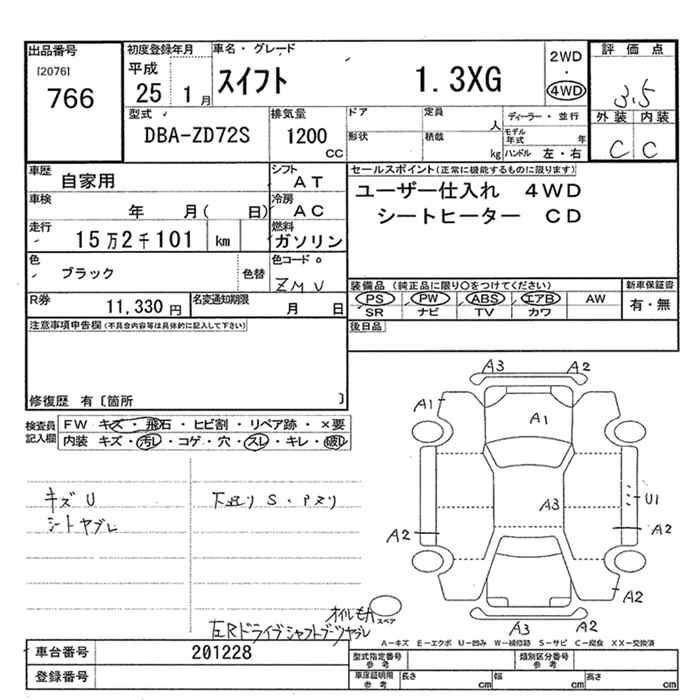 出品番号
[2076]
766
初度登録年月
平成
25 1月
車名・グレード
スイフト 1.3XG
2WD
・
4WD
評価点
3.5
外装 内装
C C
型式
DBA-ZD72S
排気量
1200
CC
ドア
形状
定員
人
積載
kg
ディーラー・並行
モデル年式 年
ハンドル 左・右
車歴
自家用
シフト
AT
車検
年 月( 日)
冷房
AC
走行
15万2千101 km
燃料
ガソリン
色
ブラック
色替
色コード
ZMU
R券
11,330円
名変通知期限
月 日
セールスポイント(正常に機能するものに限ります)
ユーザー仕入れ 4WD
シートヒーター CD
装備品 (純正品に限り○をつけてください)
PS PW ABS エアB AW
SR ナビ TV カワ
新車保証書
有・無
後日品
注意事項申告欄(不具合内容等は具体的に記入して下さい)
修復歴 有〔箇所 〕
検査員
記入欄
FW キズ・飛石・ヒビ割・リペア跡・×要
内装 キズ・汚レ・コゲ・穴・スレ・キレ・破レ
キズU
シートヤブレ
下廻り S・Pズリ
オイルモハ
左Rドライブシャフトブーツヤブレ
A3 A2
A1
A1
A3
U1
A2 A2
A2
A3 A2
スペア
A-キズ E-エクボ U-凹み W-補修跡 S-サビ C-腐食 XX-交換済
車台番号
201228
登録番号
型式指定番号
参考
類別区分番号
参考
車庫証明用
参考
長さ cm
幅 cm
高さ cm